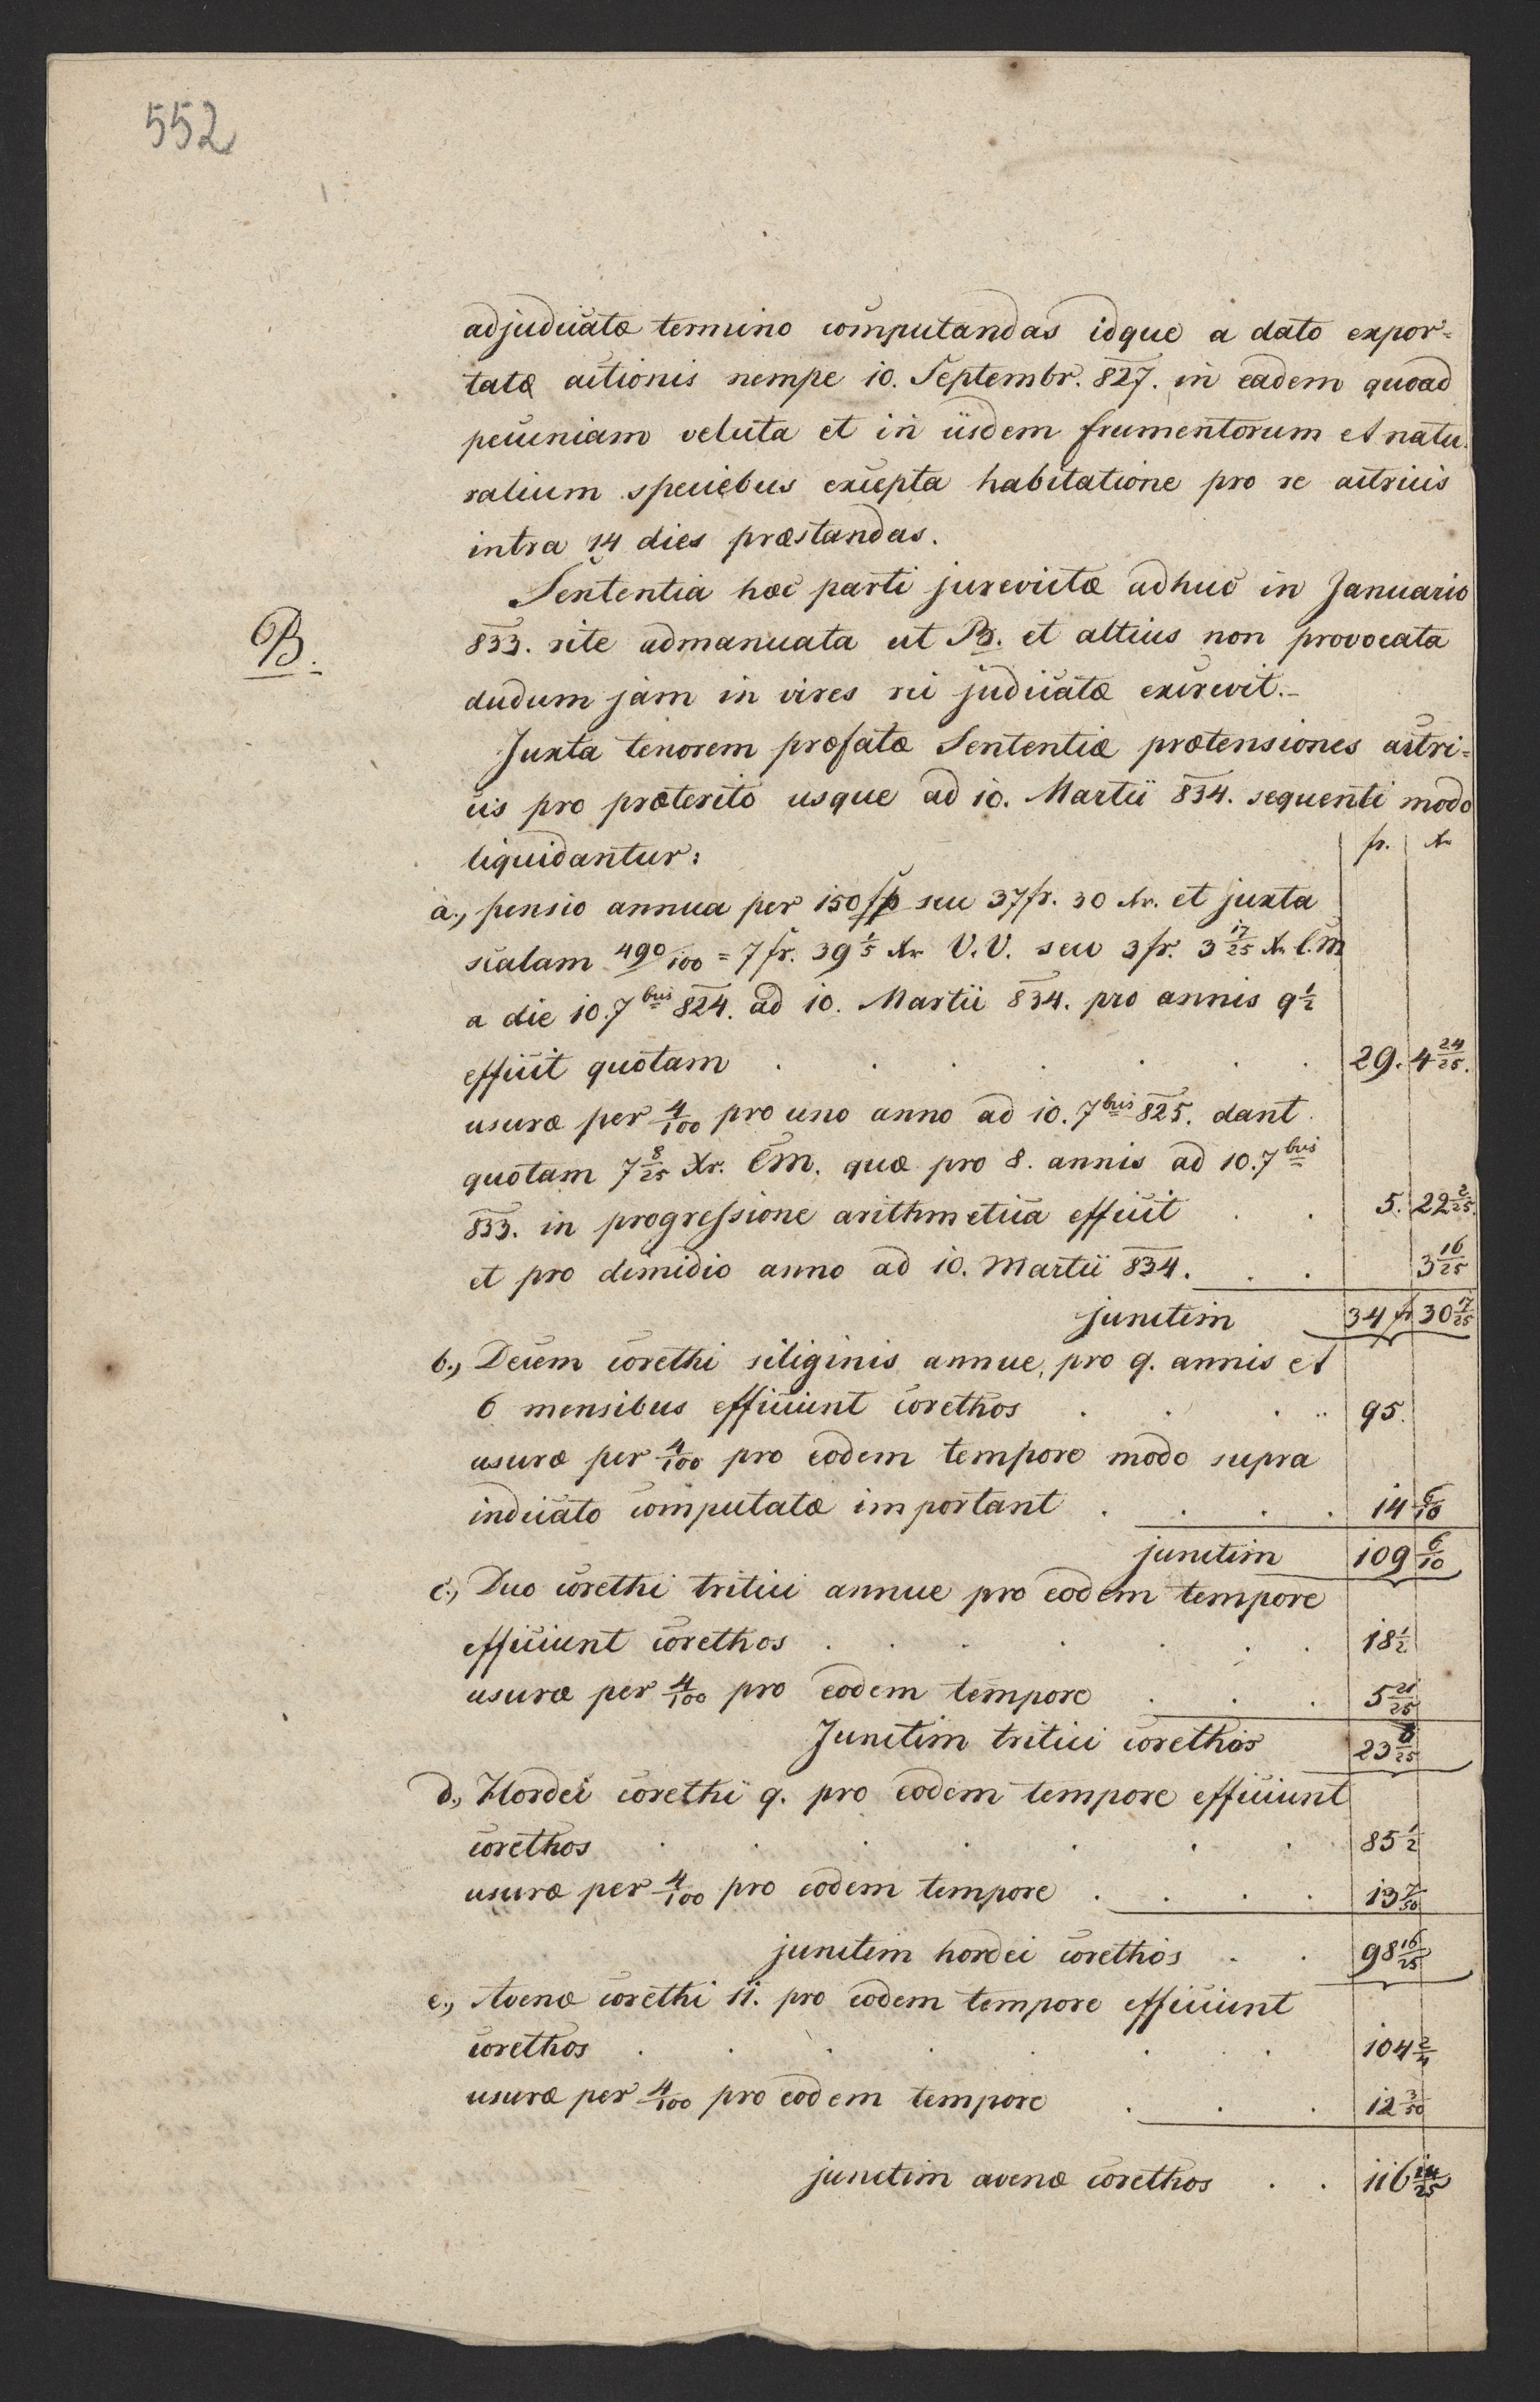 552
adjudicatæ termino computandas idque a dato expor=
tatæ actionis nempe 10. Septembr. 827. in eadem quoad
pecuniam veluta et in iisdem frumentorum et natu=
ralium speciebus excepta habitatione pro re actricis
intra 14 dies præstandas.
Sententia hæc parti jurevictæ adhuc in Januario
B.
833. rite admanuata ut B. et altius non provocata
dudum jam in vires rei judicatæ excrevit.-
Juxta tenorem præfatæ Sententiæ prætensiones actri=
cis pro præterito usque ad 10. Martii 834. sequenti modo
liquidantur: fr. Xr
a., pensio annua per 150 seu 37 fr. 30 Xr. et juxta
scalam 490/100 = 7 fr. 39 1/5 Xr V.V. seu 3 fr. 3 17/25 Xr C.M
a die 10. 7bris 824. ad 10. Martii 834. pro annis 9 1/2
efficit quotam . . . . . . 29. 4 24/25.
usuræ per 4/100 pro uno anno ad 10. 7bris 825. dant
quotam 7 8/25 Xr. CM. quæ pro 8. annis ad 10. 7bris
833. in progressione arithmetica efficit . . 5. 22 2/25.
et pro dimidio anno ad 10. Martii 834. . . 3 16/25
junctim 34 fr 30 17/25
b., Decem corethi siliginis annue, pro 9. annis et
6 mensibus efficiunt corethos . . . . 95.
usuræ per 4/100 pro eodem tempore modo supra
indicato computatæ important . . . . 14 6/10
junctim 109 6/10
c., Duo corethi tritici annue pro eodem tempore
efficiunt corethos . . . . . . . 18 1/2
usuræ per 4/100 pro eodem tempore . . . 5 21/25
Junctim tritici corethos 23 8/25
d., Hordei corethi 9. pro eodem tempore efficiunt
corethos . . . . . . . 85 1/2
usuræ per 4/100 pro eodem tempore . . . . 13 7/50
junctim hordei corethos . . 98 16/25
e., Avenæ corethi 11. pro eodem tempore efficiunt
corethos . . . . . . . 104 2/4
usuræ per 4/100 pro eodem tempore . . . 12 3/50
junctim avenæ corethos . . 116 14/25